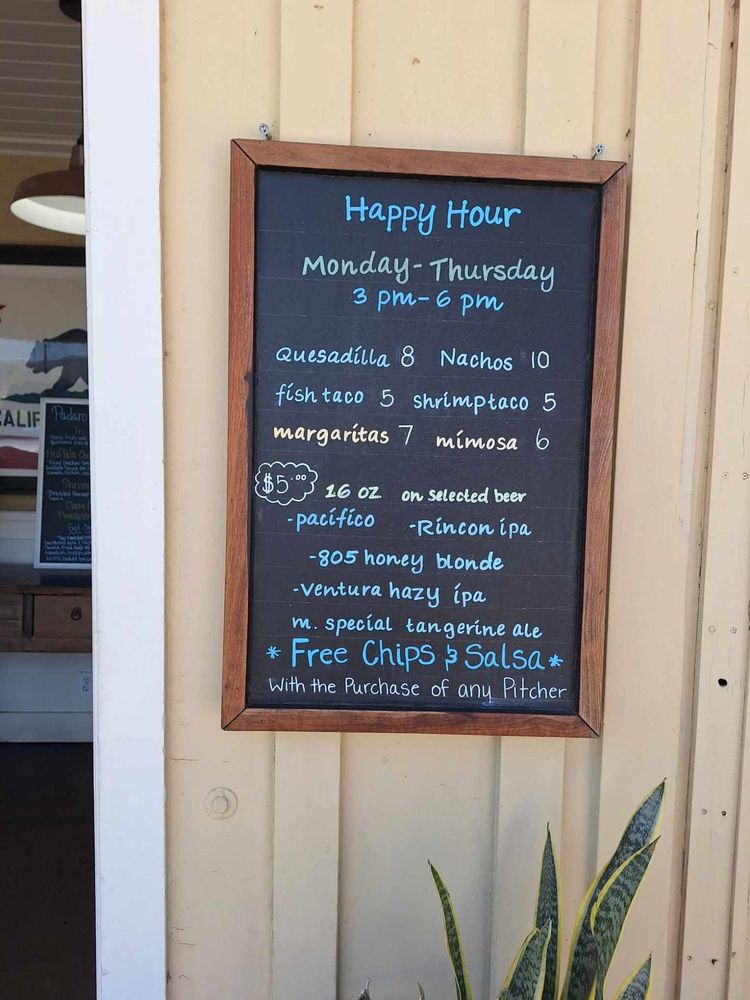 Happy Hour
Monday - Thursday
3 pm - 6 pm
Quesadilla 8 Nachos 10
fish taco 5 shrimp taco 5
margaritas 7 mimosa 6
$5.00 16 oz on selected beer
-pacifico -Rincon ipa
-805 honey blonde
-ventura hazy ipa
m. special tangerine ale
* Free Chips & Salsa *
With the Purchase of any Pitcher
CALIF
Padaro